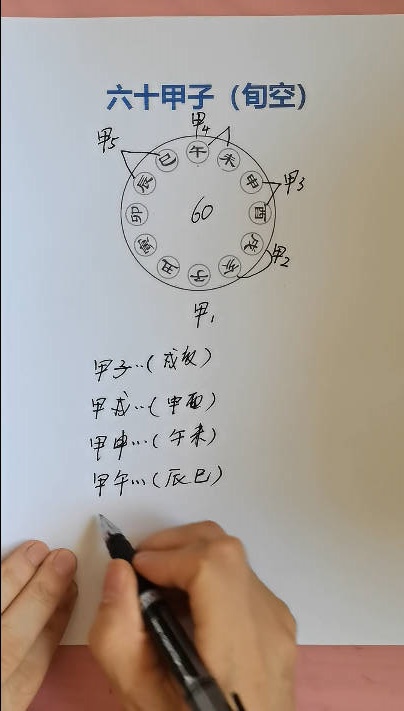 六十甲子（旬空）
甲4
甲5
午
巳
未
辰
申
甲3
卯
60
酉
寅
戌
甲2
丑
子
亥
甲1
甲子··(戌亥)
甲戌··(申酉)
甲申···(午未)
甲午···(辰巳)